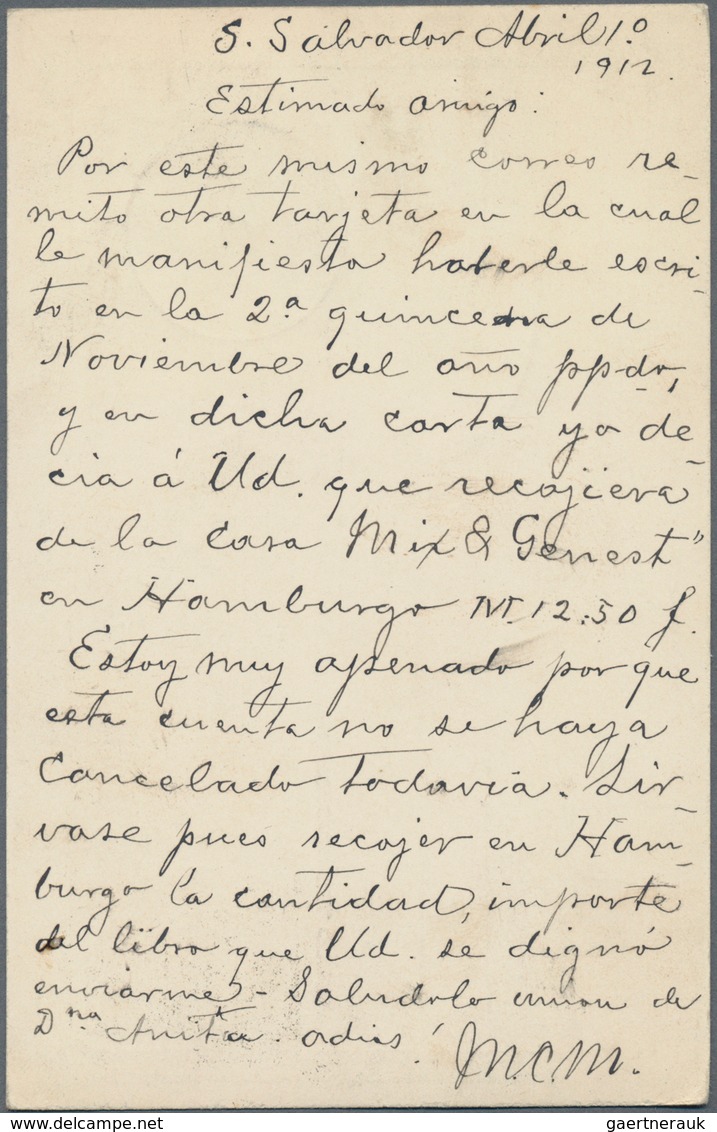 S. Salvador Abril 1.º
1912.
Estimado amigo:
Por este mismo correo re-
mito otra tarjeta en la cual
le manifiesto haberle escri-
to en la 2.ª quincena de
Noviembre del año ppdo,
y en dicha carta yo de-
cia á Ud. que recojiera
de la casa Mix & Genest"
en Hamburgo M. 12.50 f.
Estoy muy apenado por que
esta cuenta no se haya
cancelado todavia. Sir-
vase pues recojer en Ham-
burgo la cantidad, importe
del libro que Ud. se dignó
enviarme - Saludolo union de
Dña Anita. adios!
M.C.M.
gaertnerauk